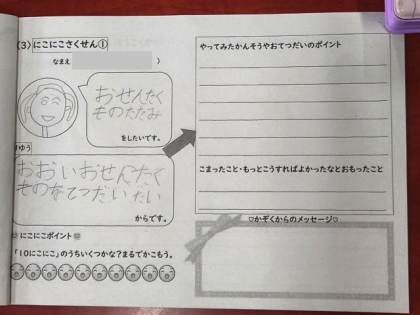 (3) にこにこさくせん①
なまえ )
おせんたく
ものたたみ
をしたいです。
りゆう
おおいおせんたく
ものをてつだいたい
からです。
にこにこポイント
「10にこにこ」のうちいくつかな?まるでかこもう。
やってみたかんそうやおてつだいのポイント
こまったこと・もっとこうすればよかったなとおもったこと
♡かぞくからのメッセージ♡